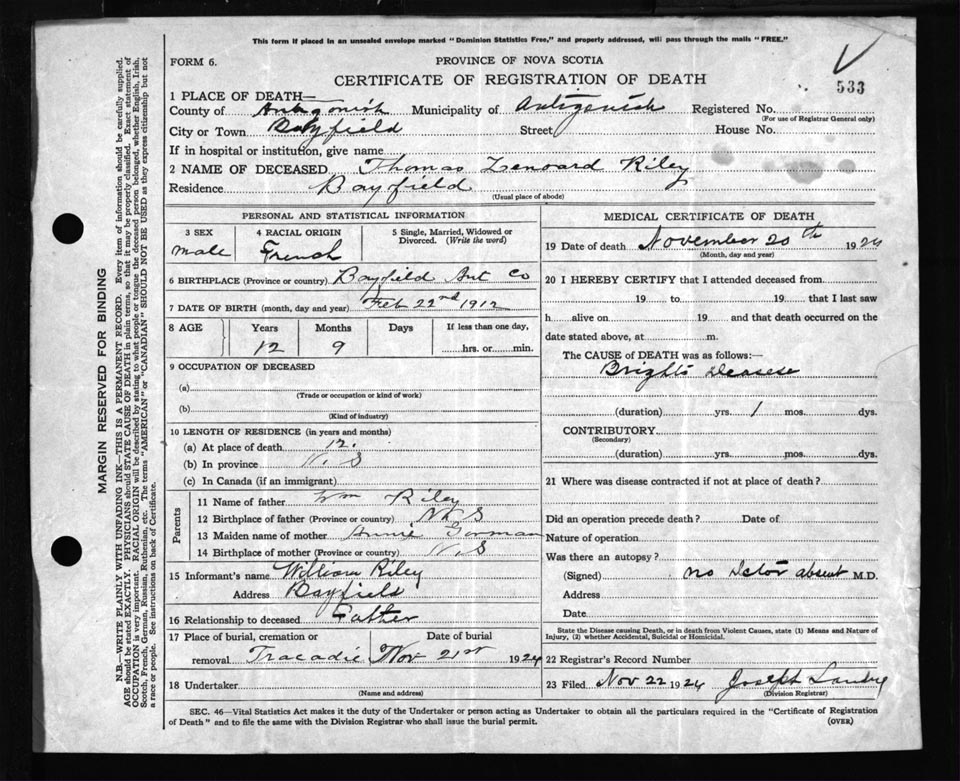 This form if placed in an unsealed envelope marked "Dominion Statistics Free," and properly addressed, will pass through the mails "FREE."
FORM 6.
PROVINCE OF NOVA SCOTIA
CERTIFICATE OF REGISTRATION OF DEATH
533
1 PLACE OF DEATH—
County of Antigonish Municipality of Antigonish Registered No.
(For use of Registrar General only)
City or Town Bayfield Street House No.
If in hospital or institution, give name
2 NAME OF DECEASED Thomas Lenoard Riley
Residence Bayfield
(Usual place of abode)
PERSONAL AND STATISTICAL INFORMATION
3 SEX
male
4 RACIAL ORIGIN
French
5 Single, Married, Widowed or Divorced. (Write the word)
6 BIRTHPLACE (Province or country) Bayfield Ant Co
7 DATE OF BIRTH (month, day and year) Feb 22nd 1912
8 AGE Years Months Days If less than one day,
12 9 hrs. or min.
9 OCCUPATION OF DECEASED
(a)
(Trade or occupation or kind of work)
(b)
(Kind of industry)
10 LENGTH OF RESIDENCE (in years and months)
(a) At place of death 12.
(b) In province N. S
(c) In Canada (if an immigrant)
Parents
11 Name of father Wm Riley
12 Birthplace of father (Province or country) N. S
13 Maiden name of mother Annie Gorman
14 Birthplace of mother (Province or country) N. S
15 Informant's name William Riley
Address Bayfield
16 Relationship to deceased Father
17 Place of burial, cremation or Date of burial
removal Tracadie Nov 21st 1924
18 Undertaker
(Name and address)
MEDICAL CERTIFICATE OF DEATH
19 Date of death November 20th 1924
(Month, day and year)
20 I HEREBY CERTIFY that I attended deceased from
19 to 19 that I last saw
h alive on 19 and that death occurred on the
date stated above, at m.
The CAUSE OF DEATH was as follows:—
Brights Deasese
(duration) yrs. 1 mos. dys.
CONTRIBUTORY
(Secondary)
(duration) yrs. mos. dys.
21 Where was disease contracted if not at place of death?
Did an operation precede death? Date of
Nature of operation
Was there an autopsy?
(Signed) no absent M.D.
Address
Date
State the Disease causing Death, or in death from Violent Causes, state (1) Means and Nature of
Injury, (2) whether Accidental, Suicidal or Homicidal.
22 Registrar's Record Number
23 Filed Nov 22 1924 Joseph Landry
(Division Registrar)
SEC. 46—Vital Statistics Act makes it the duty of the Undertaker or person acting as Undertaker to obtain all the particulars required in the "Certificate of Registration
of Death" and to file the same with the Division Registrar who shall issue the burial permit.
(OVER)
MARGIN RESERVED FOR BINDING
N.B.—WRITE PLAINLY WITH UNFADING INK—THIS IS A PERMANENT RECORD. Every item of information should be carefully supplied.
AGE should be stated EXACTLY. PHYSICIANS should STATE CAUSE OF DEATH in plain terms, so that it may be properly classified. Exact statement of
OCCUPATION is very important. RACIAL ORIGIN will be described by stating to what people or tongue the deceased person belonged, whether English, Irish,
Scotch, French, German, Russian, Ruthenian, etc. The terms "AMERICAN" or "CANADIAN" SHOULD NOT BE USED as they express citizenship but not
a race or people. See instructions on back of Certificate.